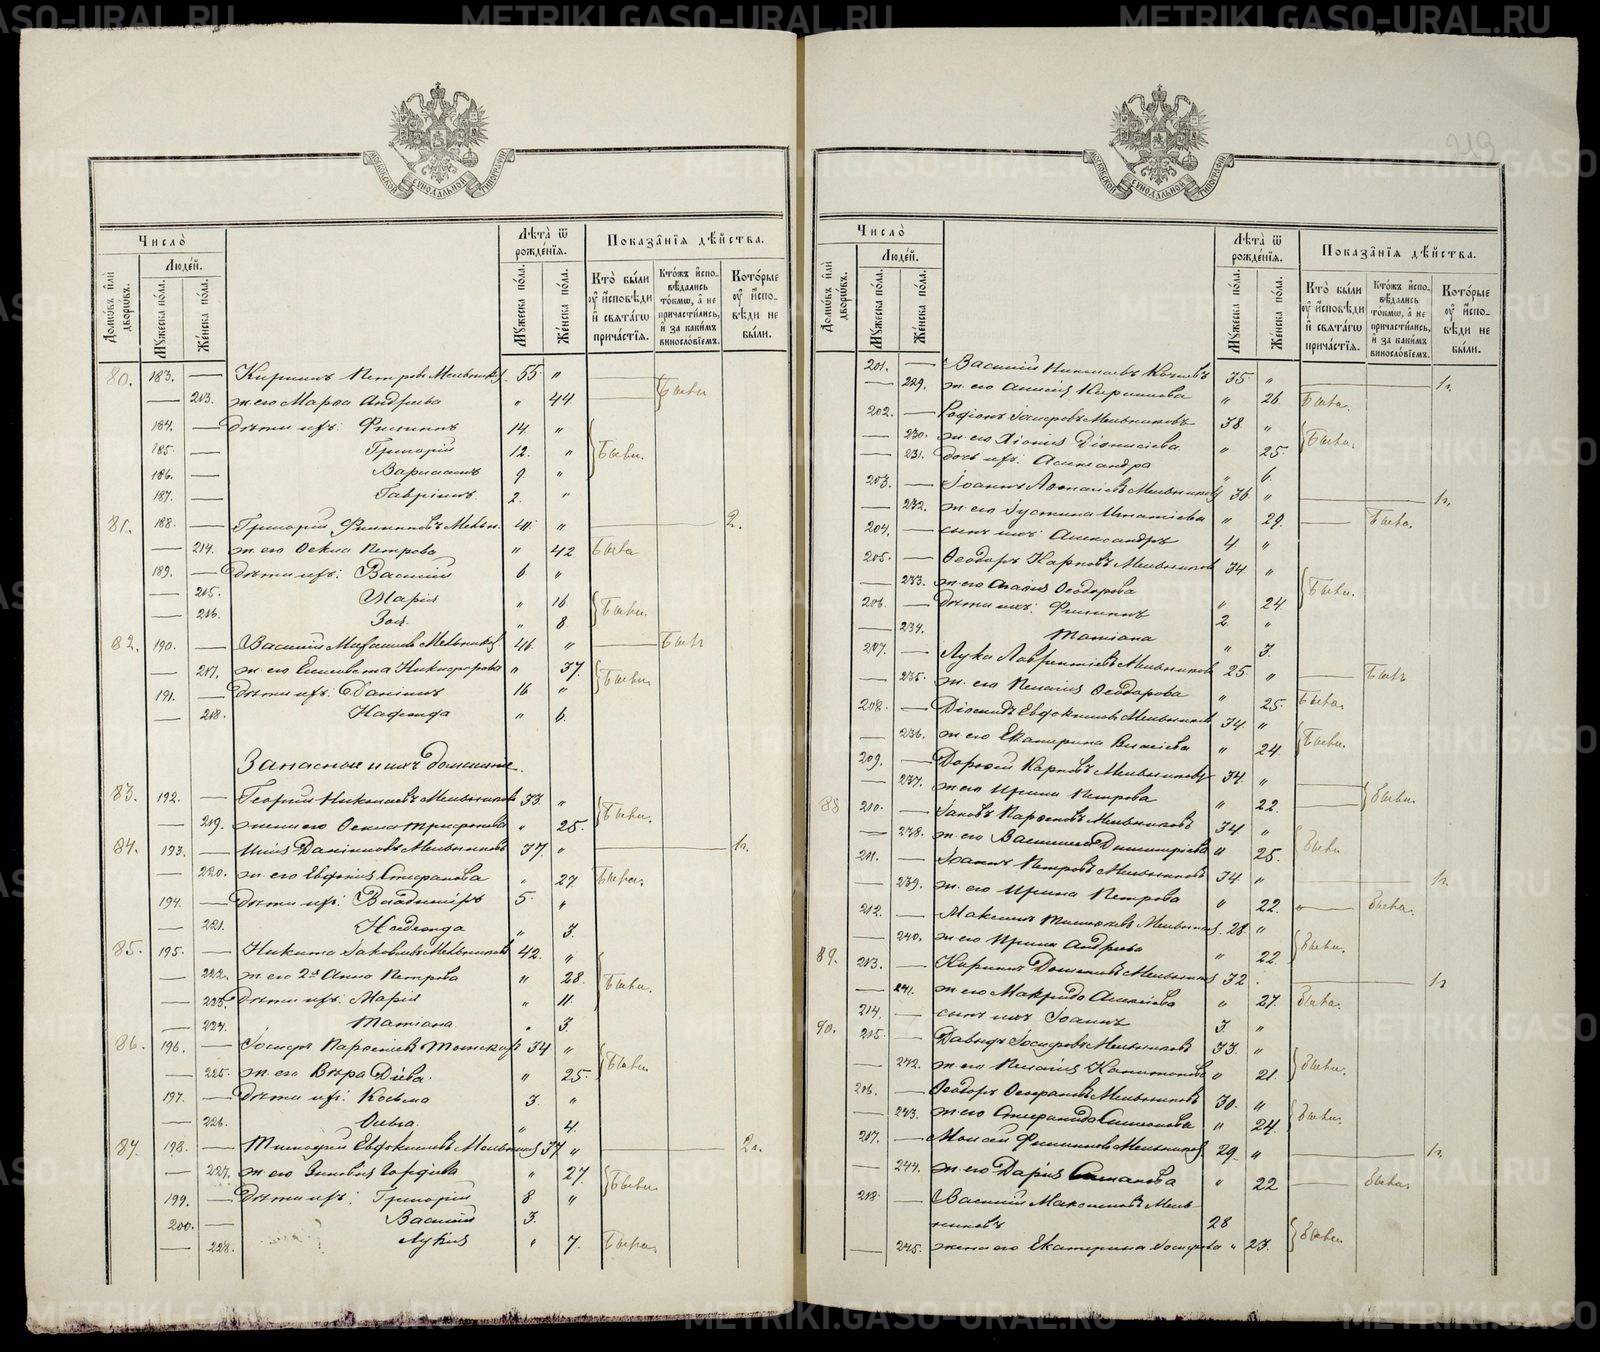 219
МОСКОВСКОЙ СѴНОДАЛЬНОЙ ТИПОГРАФІИ
Число̀
Людей.
Домѡвъ и҆лѝ дворѡвъ.
Мꙋжеска по́ла.
Же́нска по́ла.
Лѣ́та ѿ рожде́нїѧ.
Мꙋжеска по́ла.
Же́нска по́ла.
Показа̑нїѧ дѣ́йства.
Кто̀ бы́ли оу҆ и҆́сповѣди и҆ свѧта́гѡ прича́стїѧ.
Кто́жъ и҆спо-вѣ́дались то́кмѡ, а҆ не причасти́лись, и҆ за каки́мъ винословїемъ.
Кото́рые оу҆ и҆́спо-вѣди не бы́ли.
80. 183. — Кириллъ Петровъ Мельников 55 "
— 213. ж. его Марѳа Андреева " 44 Были
184. — Дѣти их: Филиппъ 14. "
185. — Григорій 12. " Были.
186. — Варлаамъ 9. "
187. — Гавріилъ. 2. "
81. 188. — Григорій Филипповъ Мельн. 41. " 2.
— 214. ж. его Ѳекла Петрова " 42 Была
189. — Дѣти их: Василій 6. "
— 215. Марія " 16
— 216. Зоя. " 8. Были.
82. 190. — Василій Мельников 46. " Былъ
— 217. ж. его Елисавета Никифорова " 37.
191. — Дѣти их: Даніилъ 16 " Были
— 218. Надежда " 6.
Запасные нижн
83. 192. — Георгій Николаевъ Мельниковъ 33. "
— 219. жена его Ѳекла Трифонова " 25. Были.
84. 193. — Илія Даніиловъ Мельниковъ 37. " 1н.
— 220. ж. его Евфимія Стефанова " 27. Была
194. — Дѣти их: Владиміръ 5. "
— 221. Надежда " 3.
85. 195. — Никита Іаковлевъ Мельниковъ 42. "
— 222. ж. его 2я Анна Петрова " 28. Были.
— 223. Дѣти их: Марія " 11.
— 224. Татіана " 3.
86. 196. — Іосифъ Парѳеніевъ 34 "
— 225. ж. его Вѣра " 25. Были.
197. — Дѣти их: Косьма 3. "
— 226. Ольга. " 4.
87. 198. — Тимоѳей Евдокимовъ Мельников 34 " 2н.
— 227. ж. его Зиновія " 27
199. — Дѣти их: Григорій 8 " Были
200. — Василій 3.
— 228. Лукія " 7. Была
Число̀
Людей.
Домѡвъ и҆лѝ дворѡвъ.
Мꙋжеска по́ла.
Же́нска по́ла.
Лѣ́та ѿ рожде́нїѧ.
Мꙋжеска по́ла.
Же́нска по́ла.
Показа̑нїѧ дѣ́йства.
Кто̀ бы́ли оу҆ и҆́сповѣди и҆ свѧта́гѡ прича́стїѧ.
Кто́жъ и҆спо-вѣ́дались то́кмѡ, а҆ не причасти́лись, и҆ за каки́мъ винословїемъ.
Кото́рые оу҆ и҆́спо-вѣди не бы́ли.
201. — Василій Николаевъ 35 " 1н.
— 229. ж. его Кириллова " 26. Была.
202. — Родіонъ Іосифовъ Мельниковъ 38. "
— 230. ж. его Хіонія Діонисіева " 25. Были.
— 231. дочь их: Александра " 6.
203. — Іоаннъ Аѳанасіевъ Мельников 36 " 1н.
— 232. ж. его Іустина Игнатіева " 29. Была.
204. — сынъ ихъ Александръ 4 "
205. — Ѳеодоръ Карповъ Мельников 34 "
— 233. ж. его Ѳеодорова " 24 Были.
206. — Дѣти ихъ: Филиппъ 2. "
— 234. Татіана " 3.
207. — Лука Лаврентіевъ Мельников 25. " Былъ
— 235. ж. его Пелагія Ѳеодорова " 25. Была.
208. — Діомидъ Евдокимовъ Мельников 34 "
— 236. ж. его Екатерина " 24 Были.
209. — Дороѳей Карповъ Мельниковъ 34. "
— 237. ж. его Ирина Петрова " 22. были.
88 210. — Іаковъ Парѳеновъ Мельниковъ 34 "
— 238. ж. его Василиса Димитріева " 25. были
211. — Іоаннъ Петровъ Мельниковъ 34. " 1н.
— 239. ж. его Ирина Петрова " 22. была.
212. — Максимъ Мельников. 28. "
— 240. ж. его Ирина Андреева " 22. были.
89. 213. — Кириллъ Мельников 32. 1н
— 241. ж. его Макрида Алексіева " 27. была.
214. — сынъ ихъ Іоаннъ 3. "
90. 215. — Давидъ Іосифовъ Мельниковъ 33. "
— 242. ж. его Пелагія Капитонова " 21. были.
216. — Ѳеодоръ Мельниковъ 30. "
— 243. ж. его Стефанида Симеонова " 24. были.
217. — Моисей Филипповъ Мельников. 29. " 1н.
— 244. ж. его Дарія " 22 была.
218. — Василій Максимовъ Мель-
никовъ 28
— 245. жена его Екатерина Іосифова " 23. были.
METRIKI.GASO-URAL.RU